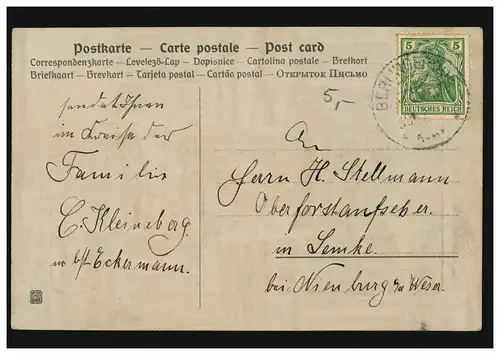 Postkarte — Carte postale — Post card
Correspondenzkarte – Levelező-Lap – Dopisnice – Cartolina postale – Brefkort
Briefkaart – Brevkort – Tarjeta postal – Cartão postal – Открытое Письмо
5
5
DEUTSCHES REICH
BERLIN
5,-
sendet Ihnen
im Kreise der
Familie
C. Kleineberg
Eckermann.
An
Herrn H. Stellmann
Oberforstaufseher.
in Lemke
bei Nienburg a/ Weser.